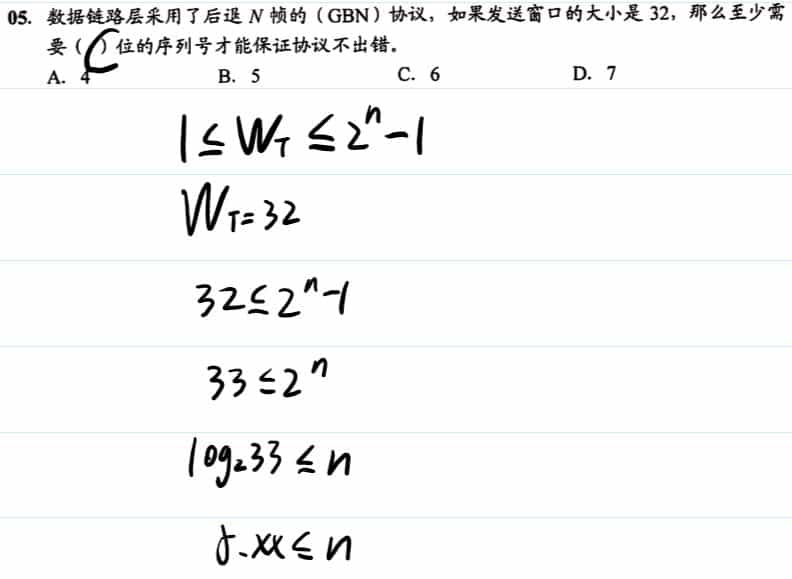 05. 数据链路层采用了后退 N 帧的（GBN）协议，如果发送窗口的大小是 32，那么至少需
要（C）位的序列号才能保证协议不出错。
A. 4 B. 5 C. 6 D. 7
1≤W_T≤2^n-1
W_T=32
32≤2^n-1
33≤2^n
log₂33≤n
5.xx≤n